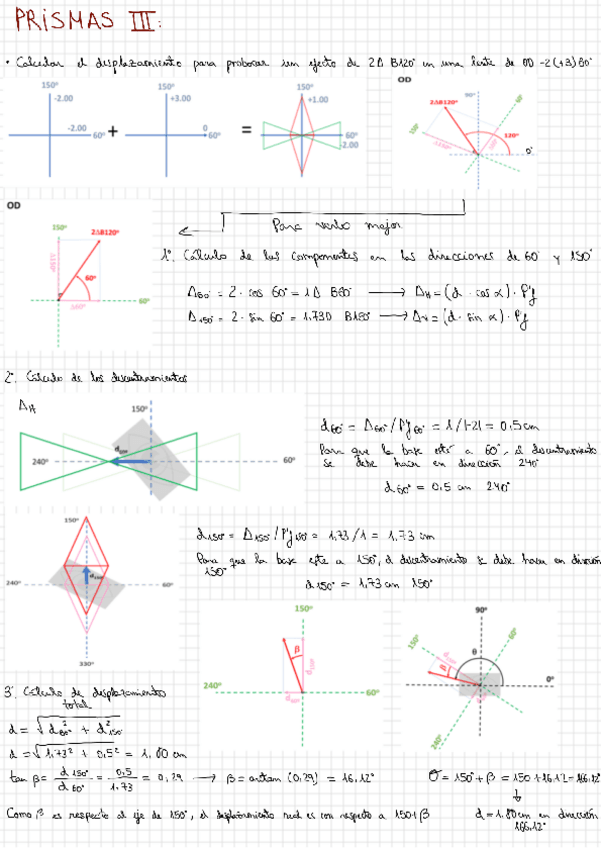 PRISMAS III:
• Calcular el desplazamiento para probocar un efecto de 2Δ B120° en una lente de OD -2(+3)60°
150°
-2.00
-2.00
60°
+
150°
+3.00
0
60°
=
150°
+1.00
60°
-2.00
OD
90°
60°
2ΔB120°
150°
120°
0°
OD
150°
2ΔB120°
60°
60°
Para verlo mejor
1°. Cálculo de las componentes en las direcciones de 60° y 150°
Δ60° = 2 · cos 60° = 1Δ B60° → ΔH = (d · cos α) · P'f
Δ150° = 2 · sin 60° = 1,73D B150° → ΔV = (d · sin α) · Pf
2° Cálculo de los descentramientos
ΔH
150°
240°
60°
d60° = Δ60° / P'f60° = 1/|-2| = 0,5 cm
Para que la base esté a 60°, el descentramiento
se debe hacer en dirección 240°
d60° = 0,5 cm 240°
150°
240°
60°
330°
d150° = Δ150° / P'f150° = 1,73/1 = 1,73 cm
Para que la base este a 150°, el descentramiento se debe hacer en dirección
150°
d150° = 1,73 cm 150°
150°
β
240°
60°
90°
150°
60°
θ
β
0°
240°
3° Cálculo de desplazamiento
total
d = √d60°² + d150°²
d = √1,73² + 0,5² = 1,80 cm
tan β = d150° / d60° = 0,5 / 1,73 = 0,29 → β = artan (0,29) = 16,12°
θ = 150° + β = 150 + 16,12 = 166,12°
Como β es respecto al eje de 150°, el desplazamiento real es con respecto a 150+β
d = 1,80 cm en dirección
166,12°